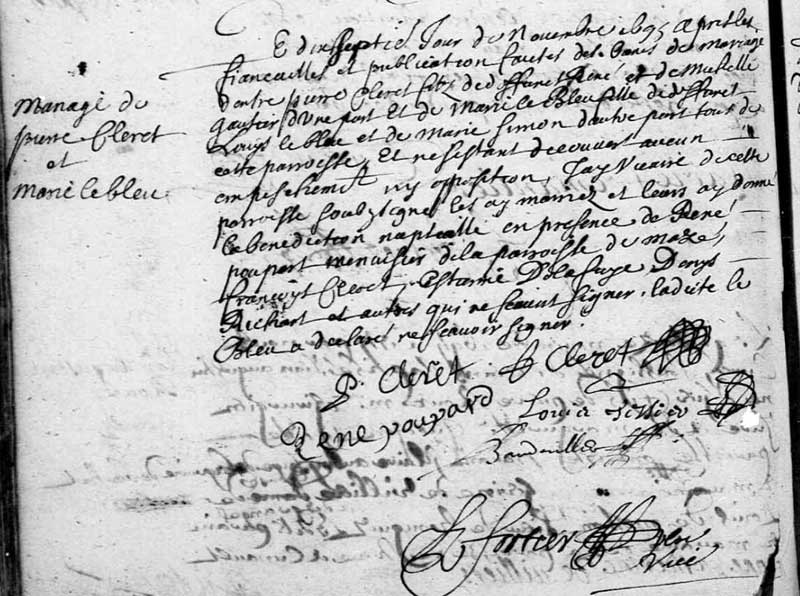 Mariage de
pierre Cleret
et
Marie le bleu
Le dixseptie Jour de Novembre 1695 apres les
fiancailles et publication faictes des bans de mariage
dentre pierre Cleret fils de deffunct René et de Michelle
Gautier d'une part Et de Marie le Bleu fille de deffunct
Louys le bleu et de Marie Simon d'autre part tous de
cette parroisse, Et ne s'estant decouvert aucun
empeschemt ny opposition, Jay Vicaire de cette
parroisse soubsigné les ay mariez et leurs ay donné
la benediction nuptialle en presence de René
poupart menuisier de la parroisse de Mazé,
françoys Cleret, Denys
Richart et autres qui ne scavent signer, ladite le
Bleu a declaré ne scavoir signer.
P. Cleret Cleret
Rene poupard Louis
fortier pbr
Vic